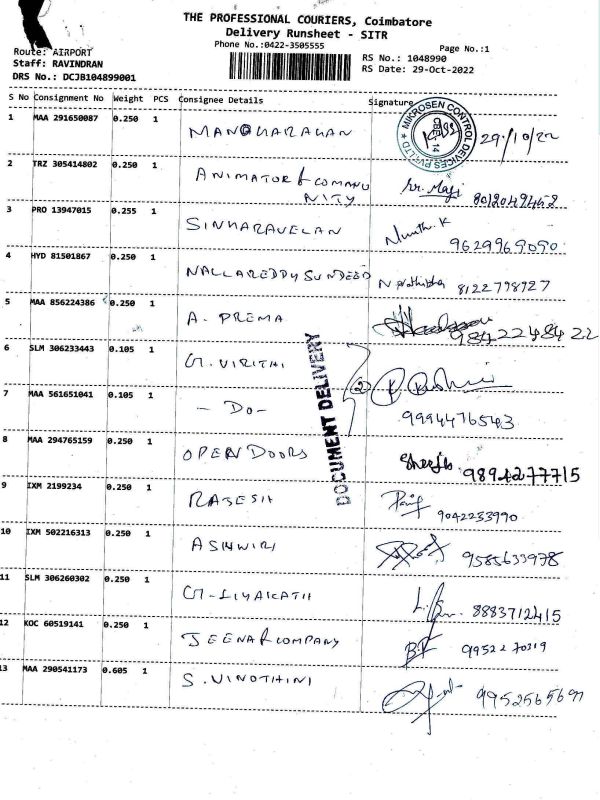 THE PROFESSIONAL COURIERS, Coimbatore
Delivery Runsheet - SITR
Phone No.:0422-3505555
Page No.:1
Route: AIRPORT
Staff: RAVINDRAN
DRS No.: DCJB104899001
RS No.: 1048990
RS Date: 29-Oct-2022
S No Consignment No Weight PCS Consignee Details Signature
1 MAA 291650087 0.250 1 MANOHARAHAN 29/10/22
MIKROSEN CONTROL DEVICES PVT. LTD
2 TRZ 305414802 0.250 1 ANIMATOR & COMMU
NITY
3 PRO 13947015 0.255 1 SINHARAVELAN Nivuth. K
9629969090
4 HYD 81501867 0.250 1 NALLAREDDY SUNDEEP N Prathibha 8122798927
5 MAA 856224386 0.250 1 A. PREMA
9842248422
6 SLM 306233443 0.105 1 G. VIRITHI
7 MAA 561651041 0.105 1 - DO - 9994476543
DOCUMENT DELIVERY
8 MAA 294765159 0.250 1 OPEN DOORS 9894277715
9 IXM 2199234 0.250 1 RAJESH
9042233990
10 IXM 502216313 0.250 1 ASHWIRI 9585633978
11 SLM 306260302 0.250 1 G. LIYAKATH 8883712415
12 KOC 60519141 0.250 1 JEENA & COMPANY 9952270219
13 MAA 290541173 0.605 1 S. VINOTHINI 9952565691